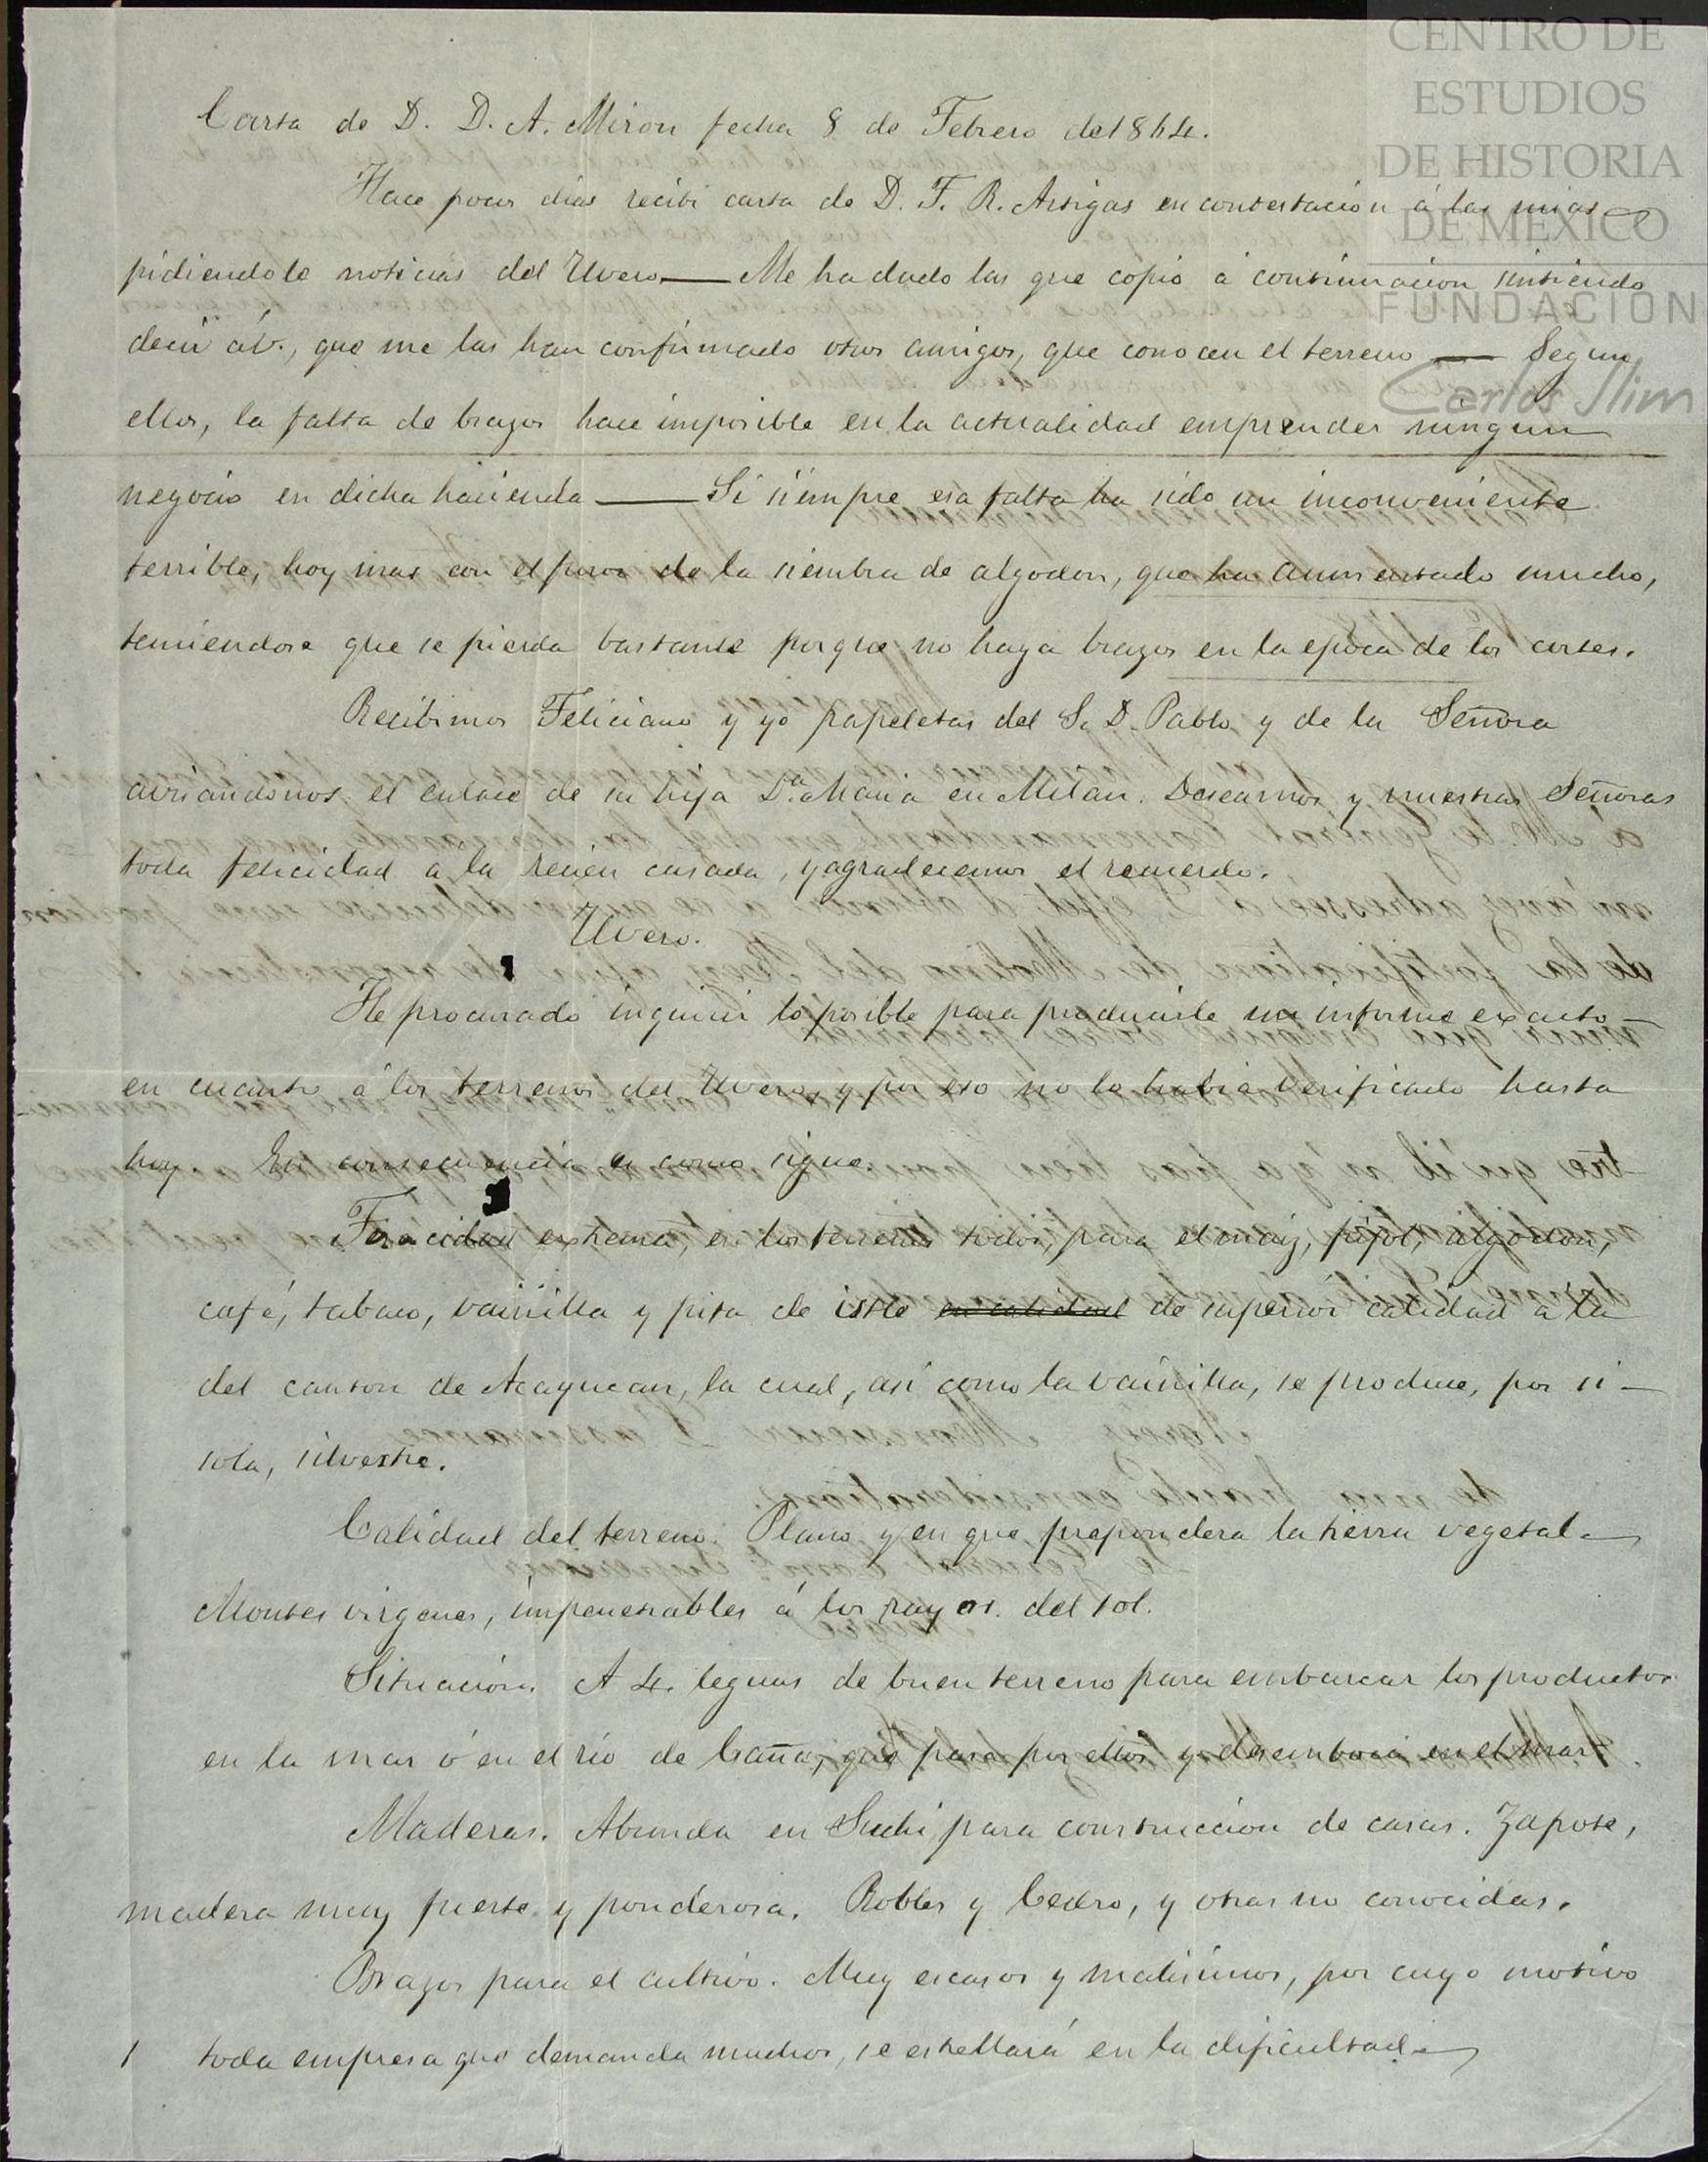 CENTRO DE
ESTUDIOS
DE HISTORIA
DE MEXICO
FUNDACION
Carlos Slim
Carta de D. D. A. Miron fecha 8 de Febrero de 1864.
Hace pocos dias recibi carta de D. F. R. Artigas en contestacion á las mias
pidiendole noticias del Uvero — Me ha dado las que copio á continuacion sintiendo
decir á V., que me las han confirmado otros amigos, que conocen el terreno — Segun
ellos, la falta de brazos hace imposible en la actualidad emprender ningun
negocio en dicha hacienda — Si siempre esa falta ha sido un inconveniente
terrible, hoy mas con el furor de la siembra de algodon, que ha aumentado mucho,
temiendose que se pierda bastante porque no haya brazos en la epoca de los cortes.
Recibimos Feliciano y yo papeletas del S. D. Pablo y de la Señora
avisandonos el enlace de su hija Dª Maria en Milan. Deseamos y nuestras Señoras
toda felicidad a la recien casada, y agradecemos el recuerdo.
Uvero.
He procurado inquirir lo posible para producirle un informe exacto
en cuanto á los terrenos del Uvero, y por eso no lo habia verificado hasta
hoy. En consecuencia es como sigue.
Feracidad extrema, en los terrenos todos, para el maiz, frijol, algodon,
café, tabaco, vainilla y pita de istle en calidad de superior calidad a la
del canton de Acayucan, la cual, asi como la vainilla, se produce, por si
sola, silvestre.
Calidad del terreno. Plano y en que prepondera la tierra vegetal.
Montes virgenes, impenetrables á los rayos del sol.
Situación. A 4. leguas de buen terreno para embarcar los productos
en la mar ó en el rio de Caña, que pasa por ellos y desemboca en el mar.
Maderas. Abunda en Suchi para construccion de casas. Zapote,
madera muy fuerte y ponderosa. Robles y Cedro, y otras no conocidas.
Brazos para el cultivo. Muy escasos y malisimos, por cuyo motivo
toda empresa que demanda muchos, se estrellará en la dificultad.